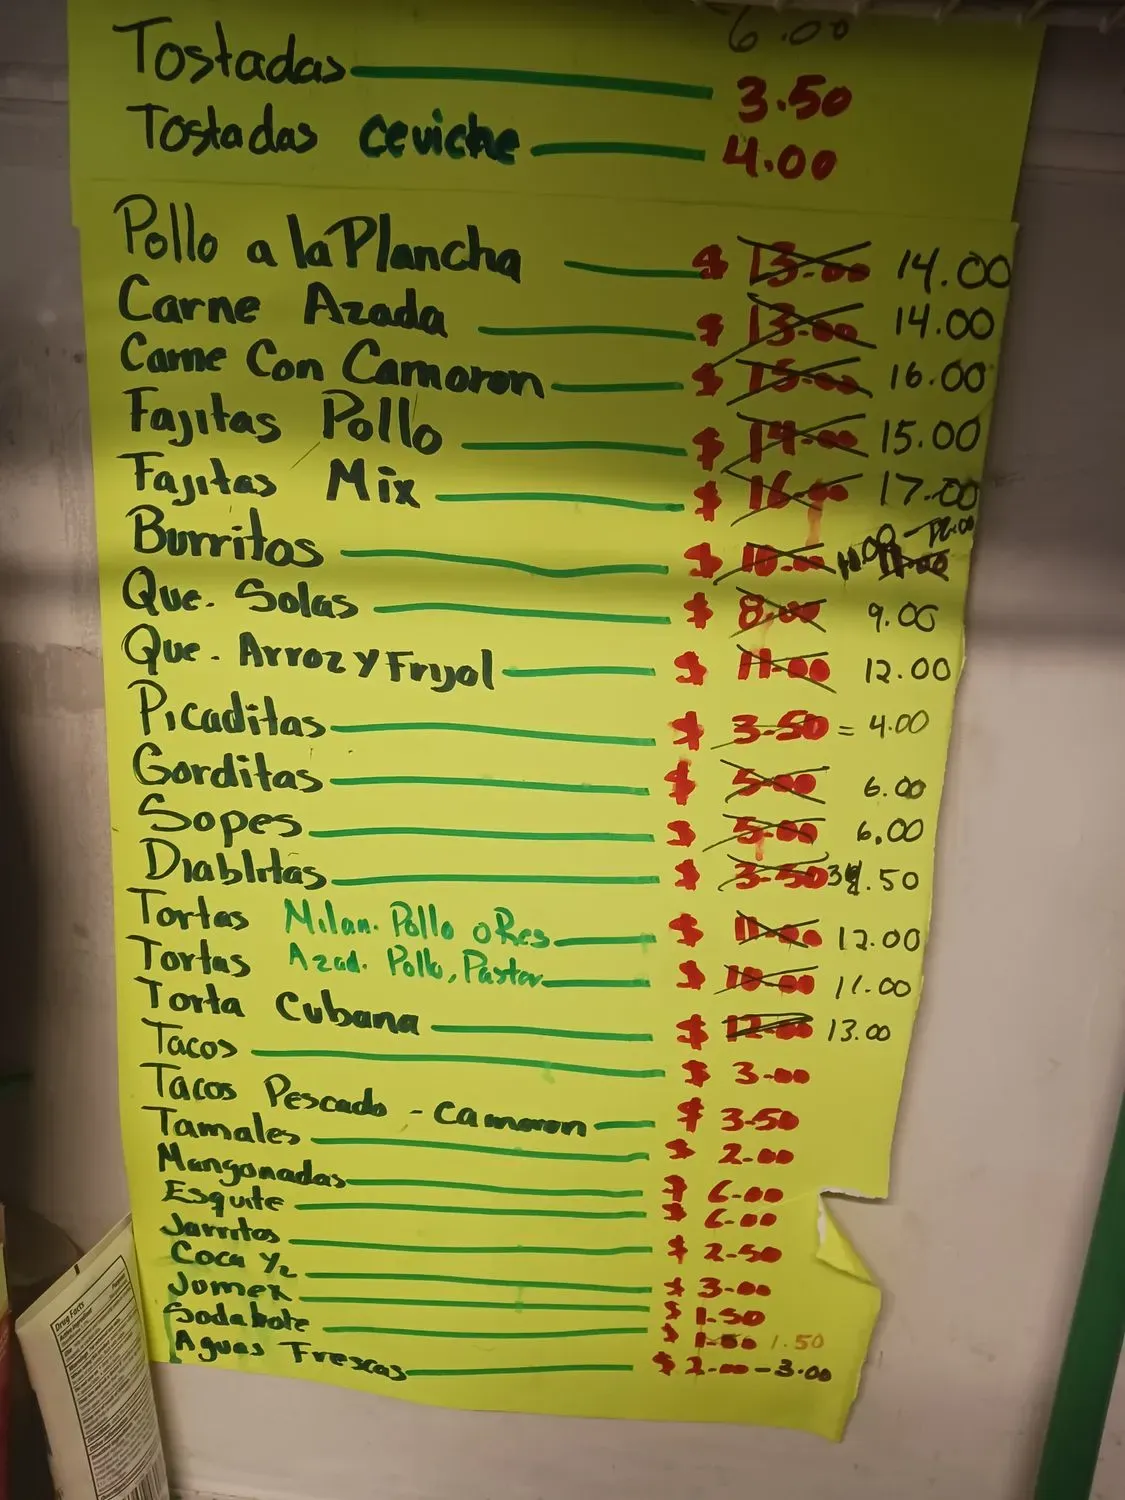 6.00
Tostadas 3.50
Tostadas ceviche 4.00
Pollo a la Plancha $ 13.00 14.00
Carne Azada $ 13.00 14.00
Carne Con Camoron $ 15.00 16.00
Fajitas Pollo $ 14.00 15.00
Fajitas Mix $ 16.00 17.00
Burritos $ 10.00 10.00 - 12.00 11.00
Que. Solas $ 8.00 9.00
Que. Arroz y Fryol $ 11.00 12.00
Picaditas $ 3.50 = 4.00
Gorditas $ 5.00 6.00
Sopes $ 5.00 6.00
Diablitas $ 3.50 .50
Tortas Milan. Pollo o Res $ 11.00 12.00
Tortas Azad. Pollo, Pastor $ 10.00 11.00
Torta Cubana $ 12.00 13.00
Tacos $ 3.00
Tacos Pescado - camoron $ 3.50
Tamales $ 2.00
Mangonadas $ 6.00
Esquite $ 6.00
Jarritos $ 2.50
Coca 1/2 $ 3.00
Jumex $ 1.50
Soda bote $ 1.50 1.50
Aguas Frescas $ 2.00 - 3.00
Drug Facts